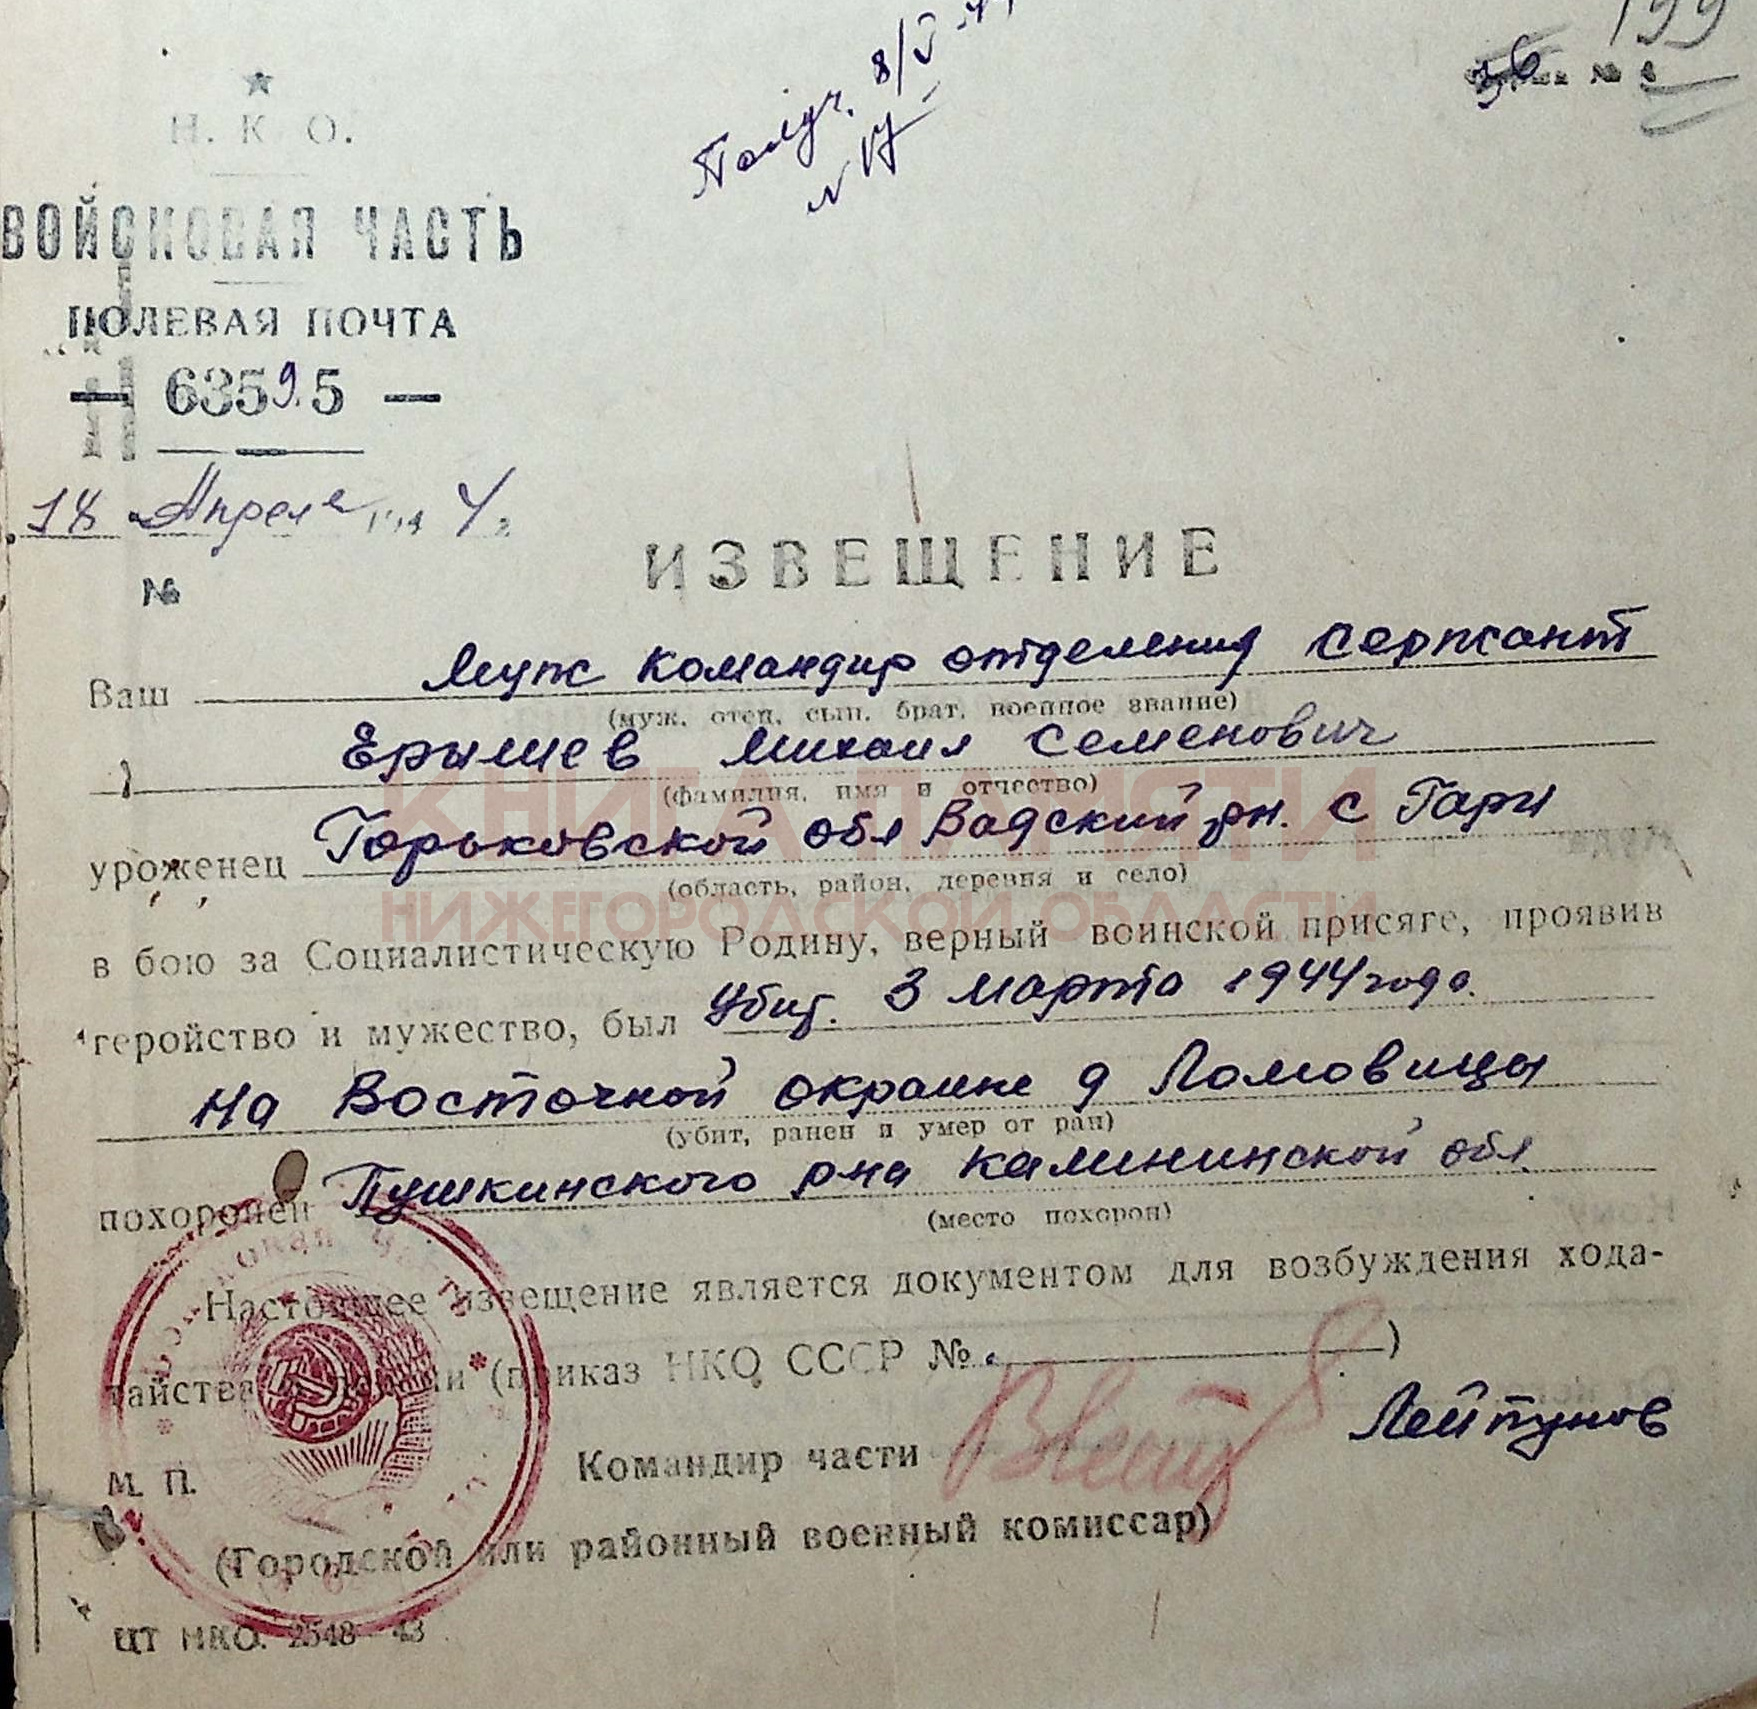 199
36
Форма № 4
Получ. 8/V-44
N 17
Н. К. О.
ВОЙСКОВАЯ ЧАСТЬ
ПОЛЕВАЯ ПОЧТА
— 63595 —
18 Апреля 1944г
№
ИЗВЕЩЕНИЕ
Ваш муж командир отделения сержант
(муж, отец, сын, брат, военное звание)
Ерышев Михаил Семенович
(фамилия, имя и отчество)
КНИГА ПАМЯТИ
уроженец Горьковской обл Вадский рн. с Гари
(область, район, деревня и село)
НИЖЕГОРОДСКОЙ ОБЛАСТИ
в бою за Социалистическую Родину, верный воинской присяге, проявив
геройство и мужество, был Убит. 3 марта 1944 года.
на Восточной окраине д Ломовицы
(убит, ранен и умер от ран)
похоронен Пушкинского рна Калининской обл.
(место похорон)
Настоящее извещение является документом для возбуждения хода-
тайства о пенсии (приказ НКО СССР № )
Командир части Лейтунов
М. П.
(Городской или районный военный комиссар)
ЦТ НКО. 2548 43